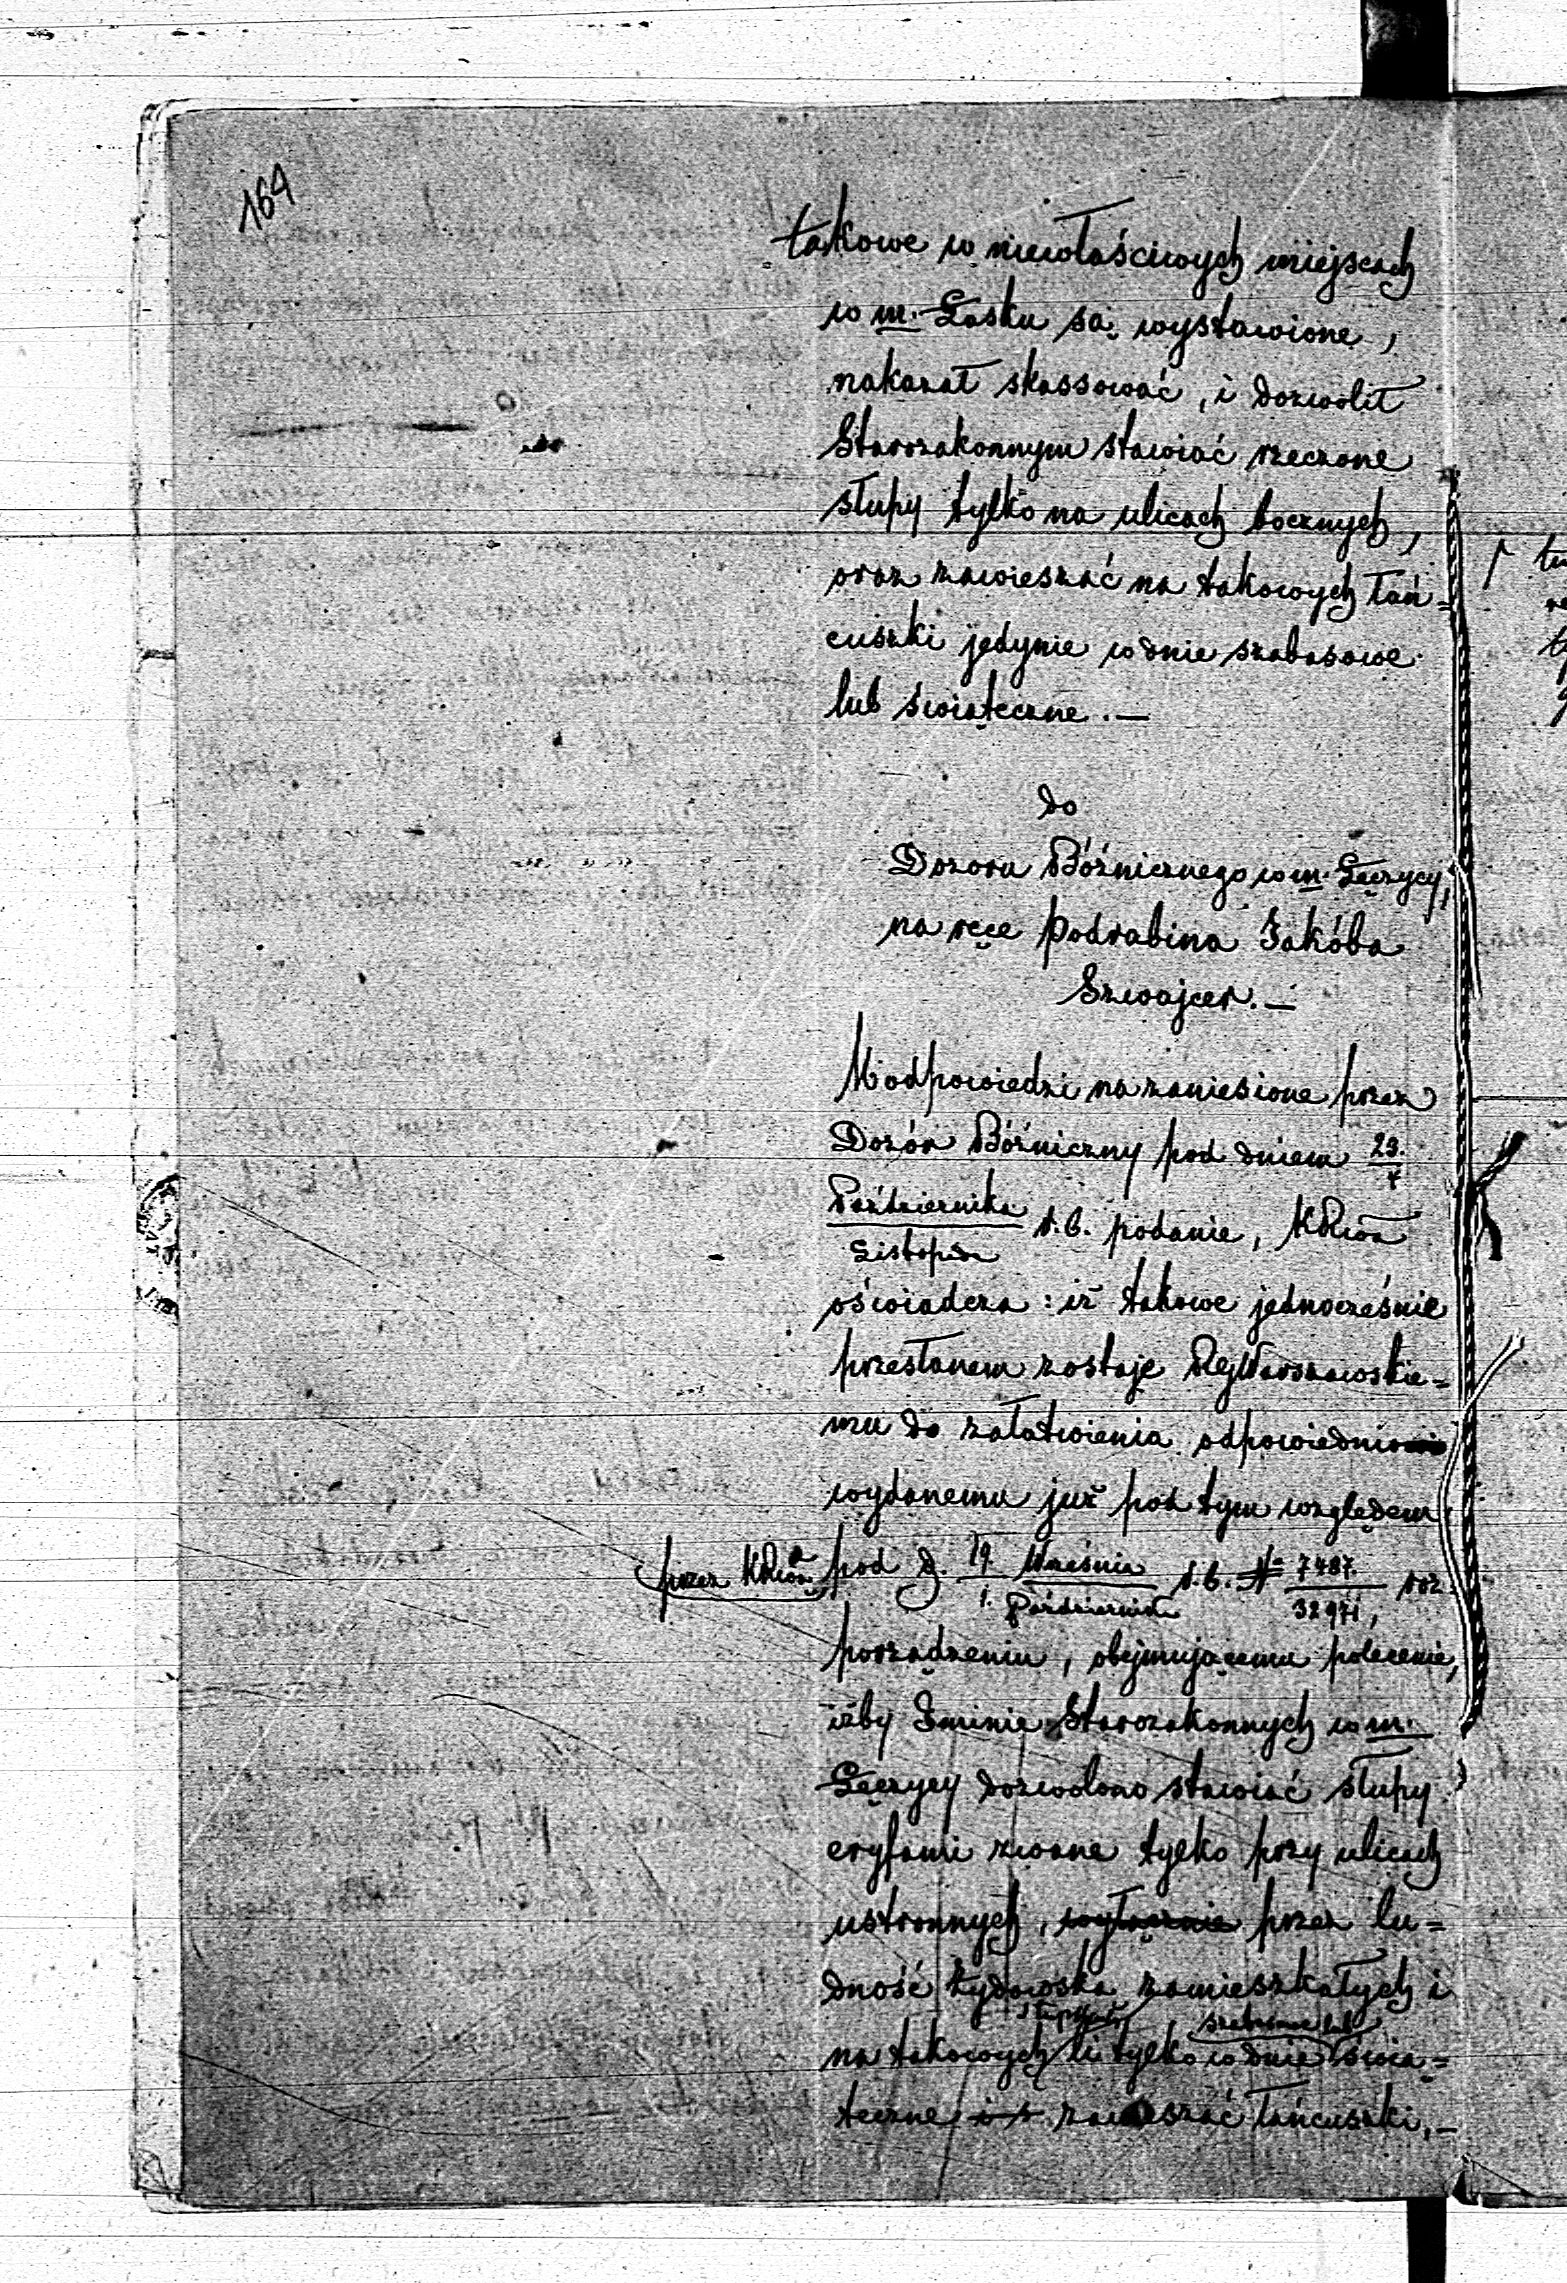 164
takowe w niewłaściwych miejscach
w m. Łasku są wystawione,
nakazał skassować, i dozwolił
Starozakonnym stawiać rzeczone
słupy tylko na ulicach bocznych,
oraz zawieszać na takowych łań=
cuszki jedynie w dnie szabasowe
lub świąteczne. —
do
Dozoru Bóźnicznego w m. Łęczycy,
na ręce Podrabina Jakóba
Szwajcer. —
W odpowiedzi na zaniesione przez
Dozór Bóźniczny pod dniem 23.
Października r. b. podanie, KRząd
Listopada
oświadcza: iż takowe jednocześnie
przesłanem zostaje RgWarszawskie=
mu do załatwienia odpowiednio
wydanemu już pod tym względem
przez KRząd pod d. 19 Września r. b. N 7487. roz
1. Października 32971,
porządzeniu, obejmującemu polecenie,
iżby Gminie Starozakonnych w m.
Łęczycy dozwolono stawiać słupy
eryfami zwane tylko przy ulicach
ustronnych, wyłącznie przez lu=
dność żydowską zamieszkałych i
szabasowe lub
na takowych li tylko w dnie świą=
teczne zawieszać łańcuszki, —